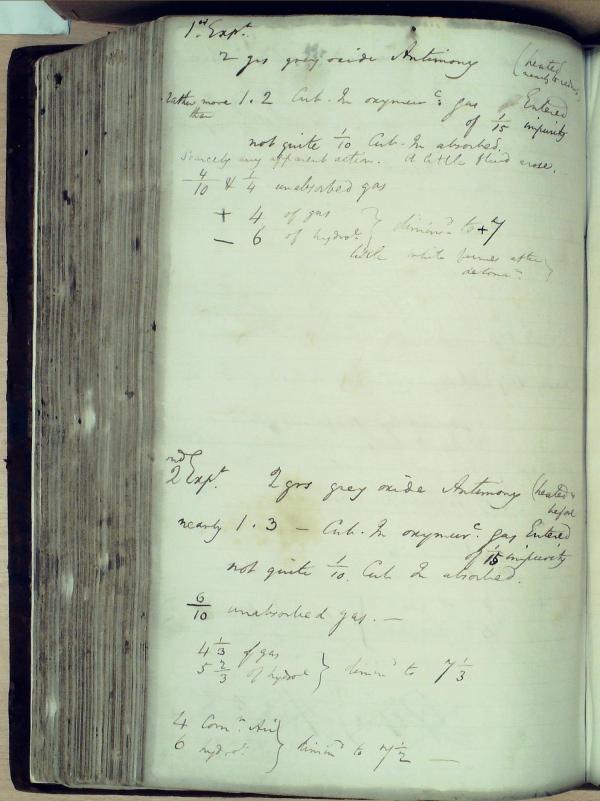 1st Expt.
2 grs grey oxide Antimony (heated
nearly to redness
rather more than 1.2 Cub. In oxymurc. gas Entered
of 1/15 impurity
not quite 1/10 Cub. In absorbed.
Scarcely any apparent action. A little fluid arose.
4/10 & 1/4 unabsorbed gas
+ 4 of gas
- 6 of hydrol. } dimind to + 7
little white fumes after
detonan. }
2nd Expt. 2 grs grey oxide Antimony (heated as
before
nearly 1.3 - Cub. In oxymurc. gas Entered
of 1/15 impurity
not quite 1/10. Cub In absorbed.
6/10 unabsorbed gas. -
4 1/3 of gas
5 2/3 of hydrol } dimind to 7 1/3
4 Comn. Air
6 hydrol. } dimind to 7 1/2 -